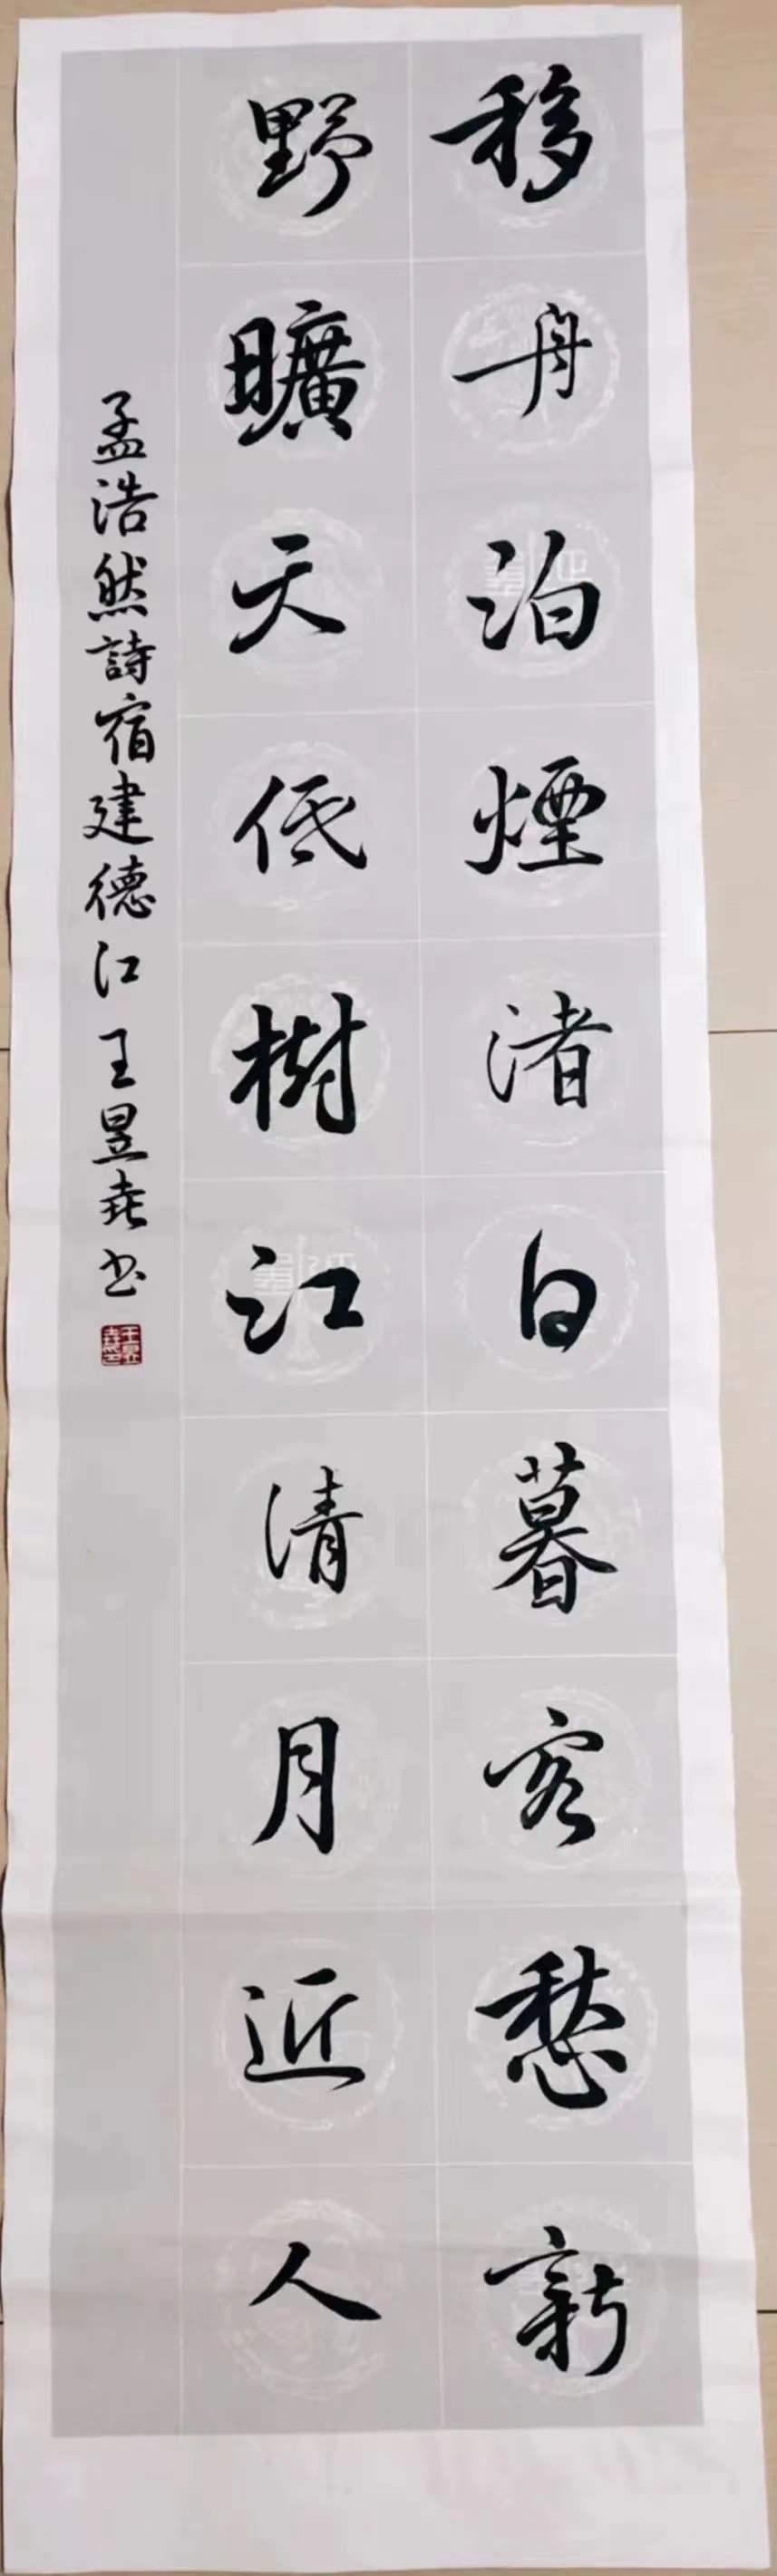 移舟泊煙渚日暮客愁新
野曠天低樹江清月近人
孟浩然詩宿建德江 王昱垚书